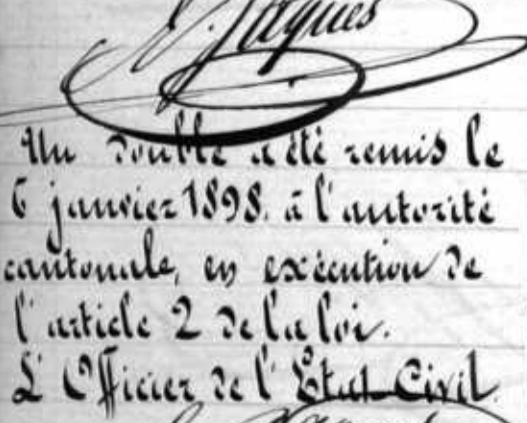 Jaques
Un double a été remis le
6 janvier 1898. à l'autorité
cantonale, en exécution de
l'article 2 de la loi.
L'Officier de l'Etat Civil.